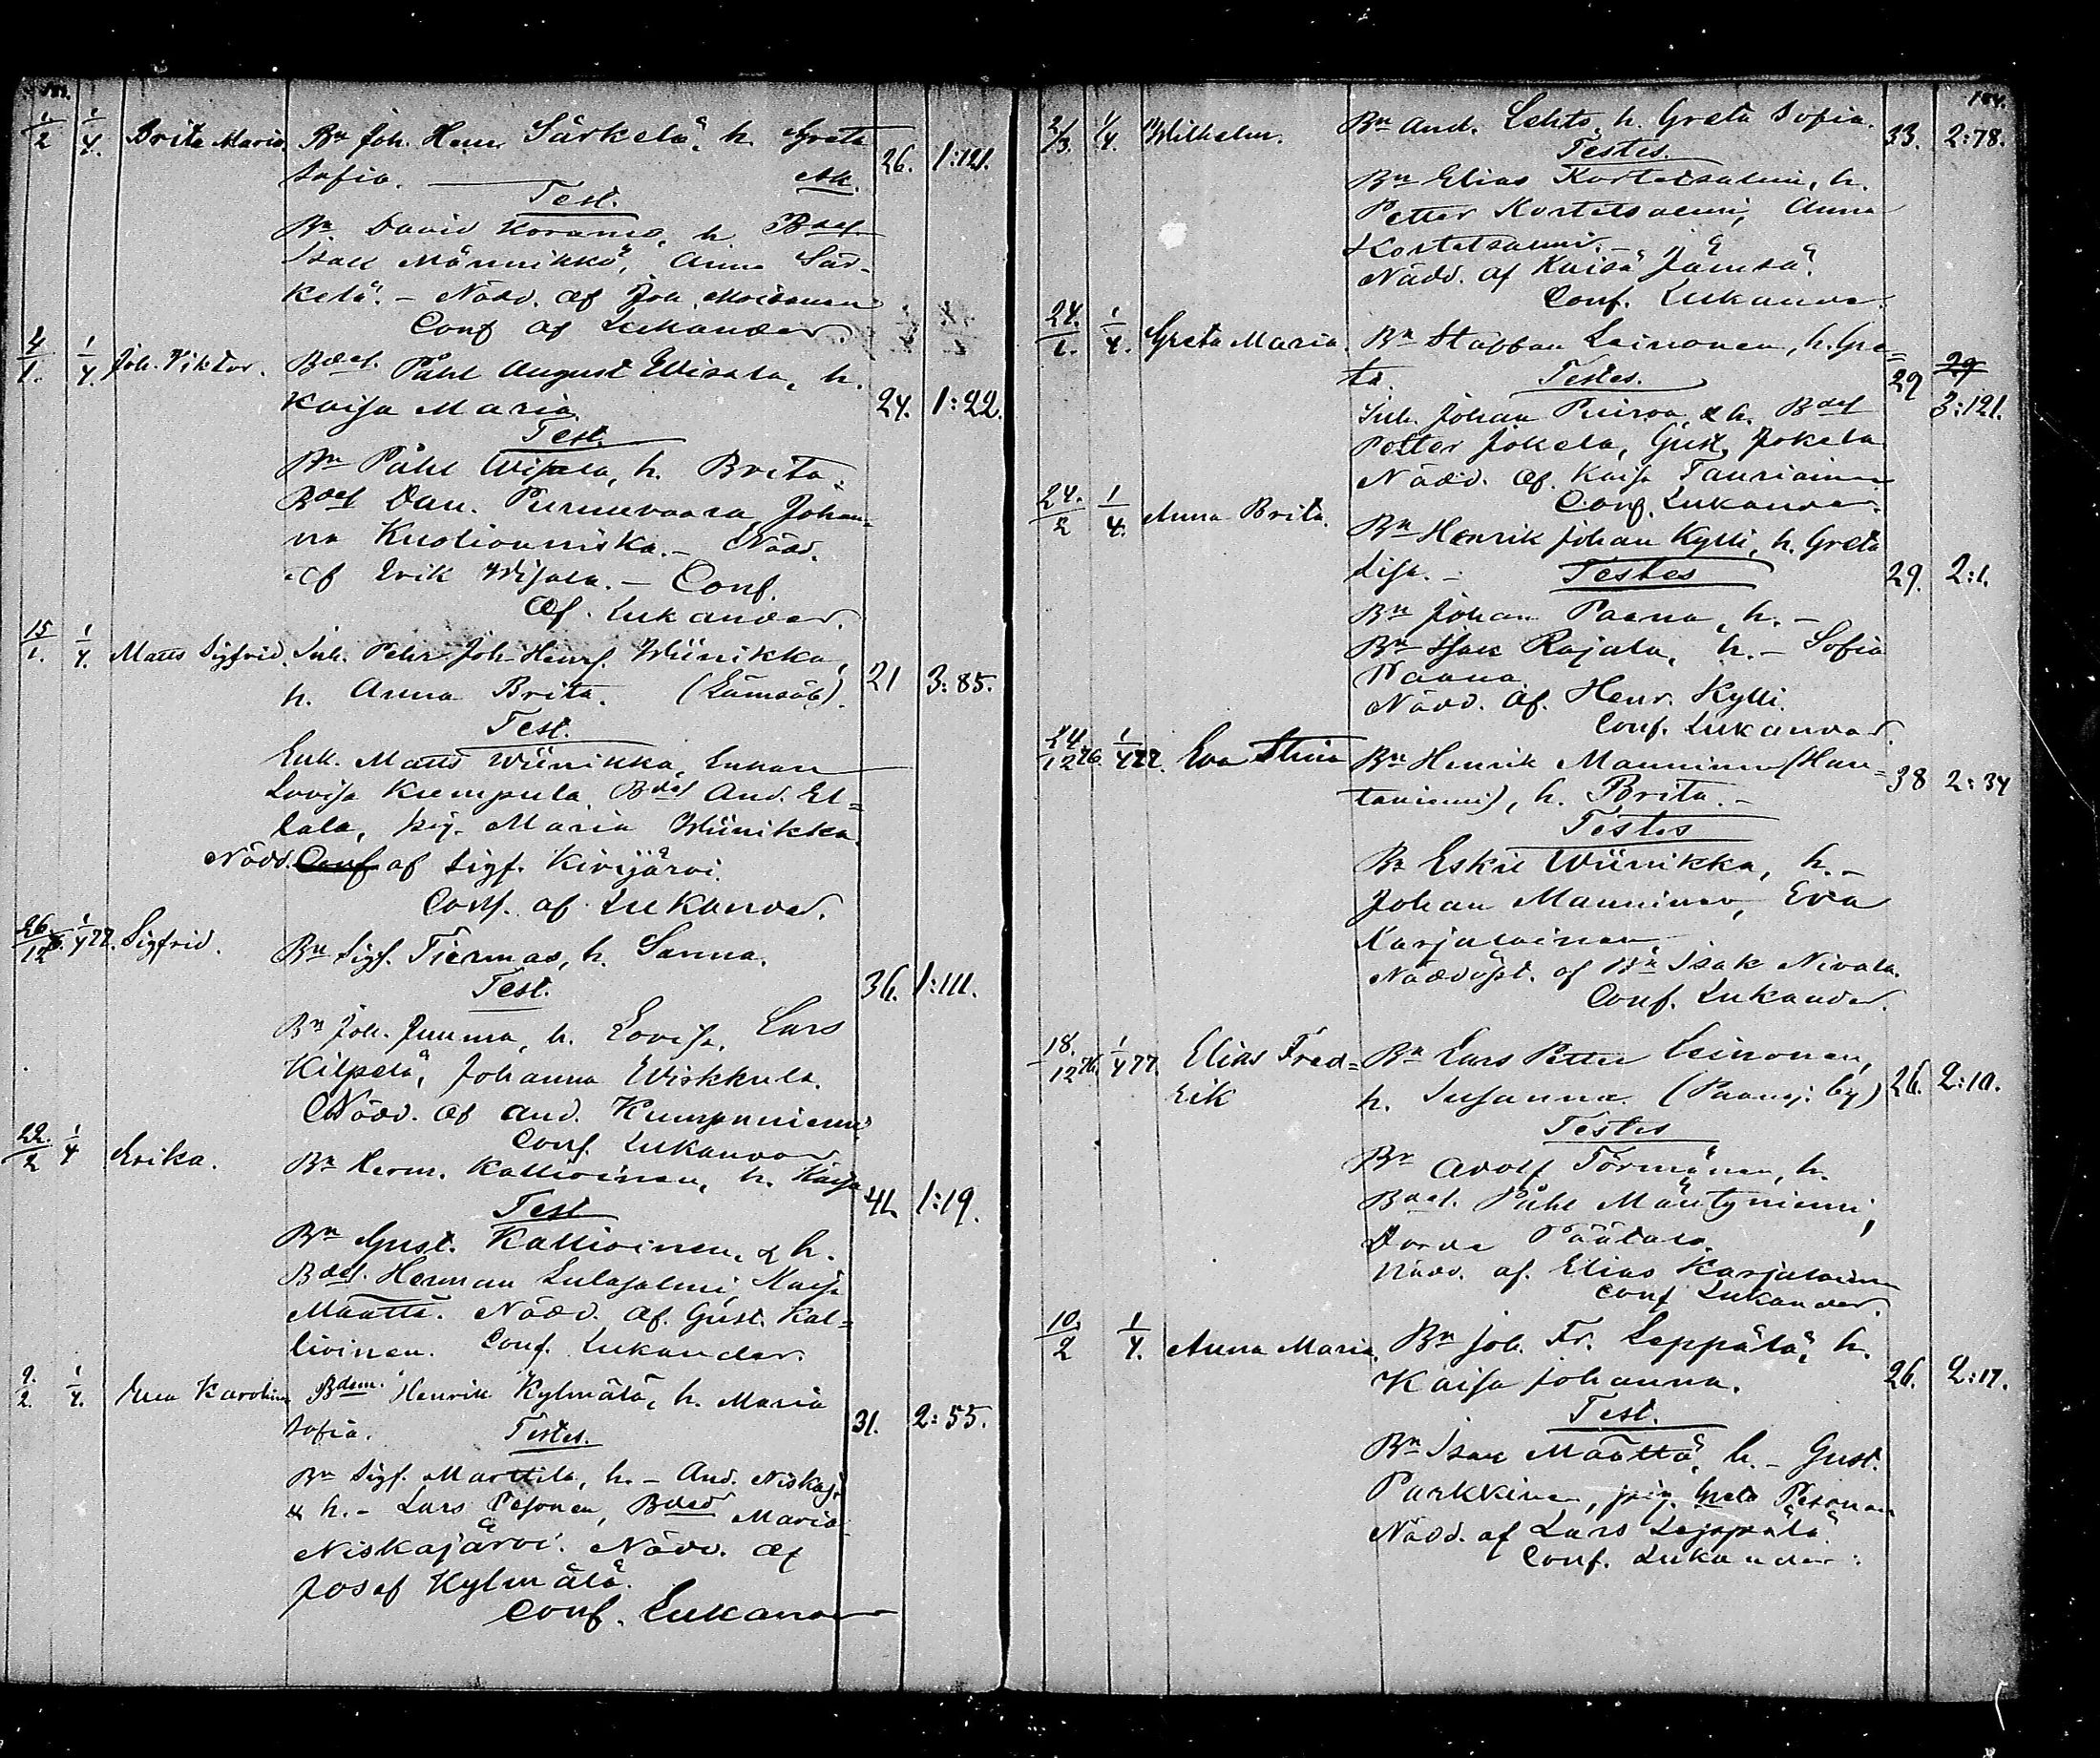 1/2 1/4. Brita Maria. Bn Joh. Henr Särkelä, h. Greta
Sofia. 26. 1:121.
Test.
Bn David Koramo, h. Bdes
Isak Männikkö, Anna Sär-
kelä. - Nödd. af Joh. Moisanen
Conf af Lukander.
4/1. 1/4. Joh. Viktor. Bdes. Påhl August Wisala, h.
Kaisa Maria 24. 1:22.
Test.
Bn Påhl Wisala, h. Brita.
Bdes Dan. Purnuvaara Johan-
na Kuolioaniska. - Nödd.
af Erik Wisala. - Conf.
af. Lukander.
15/1. 1/4. Matts Sigfrid. Inh. Pehr Joh. Henrs. Wiinikka,
h. Anna Brita. (Lämsäb). 21 3:85.
Test.
Enk. Matts Wiinikka, Enkan
Lovisa Kumpula Bdes And. El=
lala, pig. Maria Wiinikka
Nödd. Conf af Sigf. Kivijärvi.
Conf. af Lukander.
26/12 76. 1/4 77. Sigfrid. Bn Sigf. Tiermas, h. Sanna.
Test. 36. 1:111.
Bn Joh. Juuma, h. Lovisa, Lars
Kilpelä, Johanna Wiskkula.
Nödd. af And. Kumpuniemi
Conf. Lukander
22./2 1/4 Erika. Bn Herm. Kallioinen, h. Kaisa
Test 41. 1:19.
Bn Gust. Kallioinen, & h.
Bdes. Herman Sulasalmi, Kaisa
Määttä. Nödd. af. Gust. Kal=
lioinen. Conf. Lukander.
9./2. 1/4. Eva Karolina Bdem. Henrik Kylmälä, h. Maria
Sofia. Testes. 31. 2:55.
Bn Sigf. Marttila, h. - And. Niskaj.
& h. - Lars Pesonen, Bdes Maria
Niskajärvi. Nödd. af
Josef Kylmälä.
Conf. Lukander
184.
2/3. 1/4. Wilhelm. Bn And. Lehto, h. Greta Sofia. 33. 2:78.
Testes.
Bn Elias Kortetsalmi, h.
Petter Kortetsalmi, Anna
Kortetsalmi. -
Nödd. af Kaisa Jämsä.
Conf. Lukander.
24./1. 1/4. Greta Maria. Bn Staffan Leinonen, h. Gre=
ta. Testes. 29 29
Inh. Johan Puiroa, & h. Bdes 3:121.
Petter Jokela, Gust. Jokela
Nödd. af. Kaisa Tauriainen
Conf. Lukander.
24./2 1/4. Anna Brita. Bn Henrik Johan Kylli, h. Greta
Lisa. - Testes 29. 2:1.
Bn Johan Paena, h. -
Bn Isak Rajala, h. - Sofia
Naana.
Nödd. af. Henr. Kylli.
Conf. Lukander.
24/12 76. 1/4 77. Eva Stina Bn Henrik Manninen (Hau=
taniemi), h. Brita. - 38 2:34
Testes
Bn Eskil Wiinikka, h. -
Johan Manninen, Eva
Karjalainen
Nöddöpt. af Bn Isak Nivala.
Conf. Lukander.
18./12 76. 1/4 77. Elias Fred= Bn Lars Petter Leinonen,
rik h. Susanna. (Paanaj. by) 26. 2:10.
Testes
Bn Adolf Törmänen, h.
Bdes. Påhl Mäntyniemi,
Dorde Päätalo.
Nödd. af. Elias Karjalainen
Conf Lukander.
10./2 1/4. Anna Maria. Bn Joh. Fr. Leppälä, h.
Kaisa Johanna. 26. 2:17.
Test.
Bn Isak Määttä, h. - Gust.
Parkkinen, pig. Greta Pesonen
Nödd. af Lars Leppälä
Conf. Lukander.